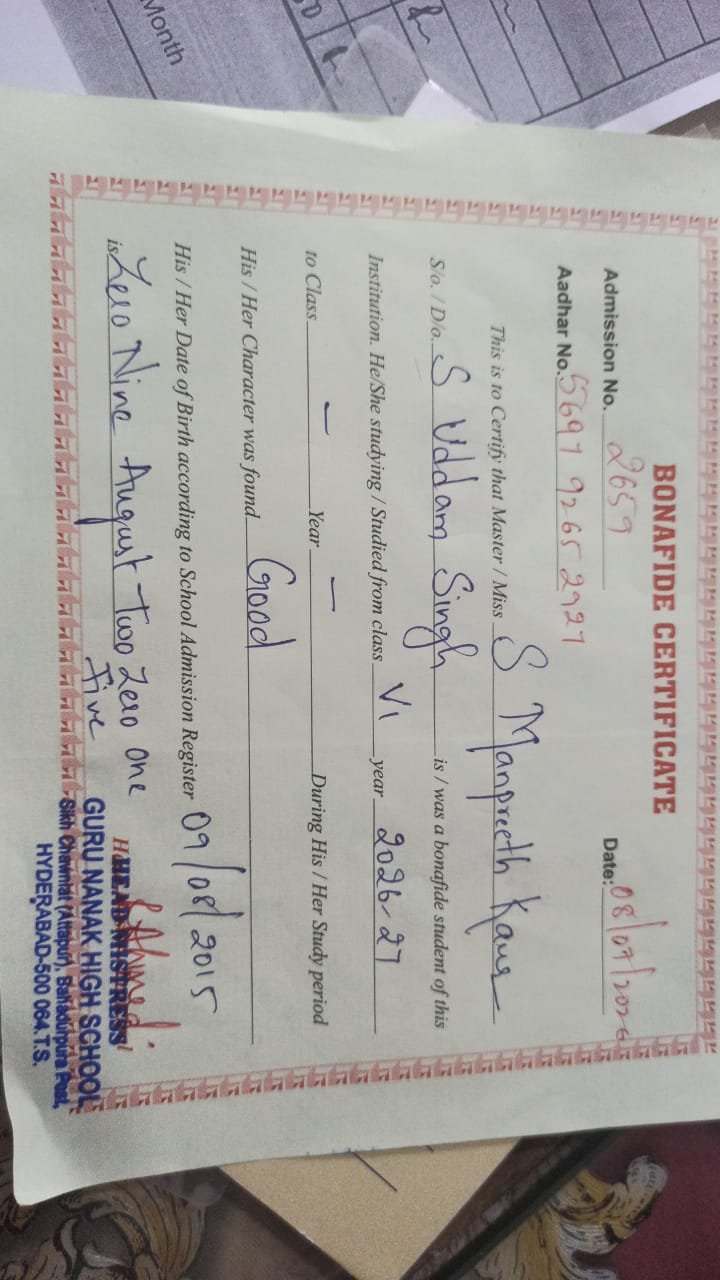 BONAFIDE CERTIFICATE
Admission No. 2659 Date: 08/07/2026
Aadhar No. 5697 9265 2927
This is to Certify that Master / Miss S Manpreeth Kaur
S/o. / D/o. S Uddam Singh is / was a bonafide student of this
Institution. He/She studying / Studied from class VI year 2026-27
to Class — Year — During His / Her Study period
His / Her Character was found Good
His / Her Date of Birth according to School Admission Register 09/08/2015
is Zero Nine August Two Zero One
Five
HEAD MISTRESS
GURU NANAK HIGH SCHOOL
Sikh Chawnhi (Attapur), Bahadurpura Post,
HYDERABAD-500 064.T.S.
Month